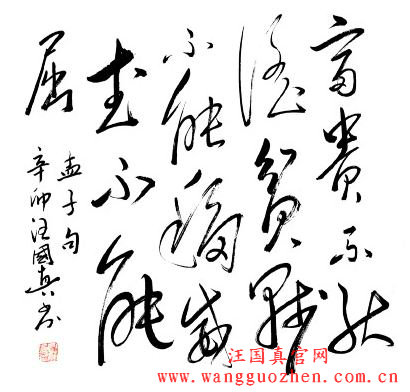 富貴不能
淫貧賤
不能移威
武不能
屈
孟子句
辛卯汪國真书
汪国真官网
www.wangguozhen.com.cn